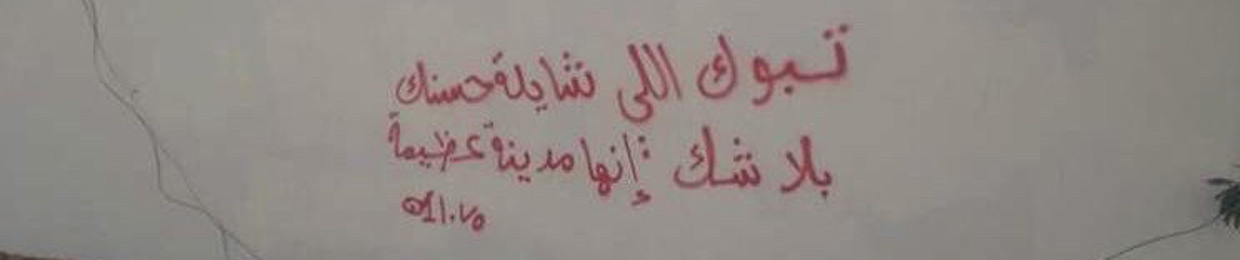 تبوك اللي شايلة حسنك
بلا شك : إنها مدينة عظيمة